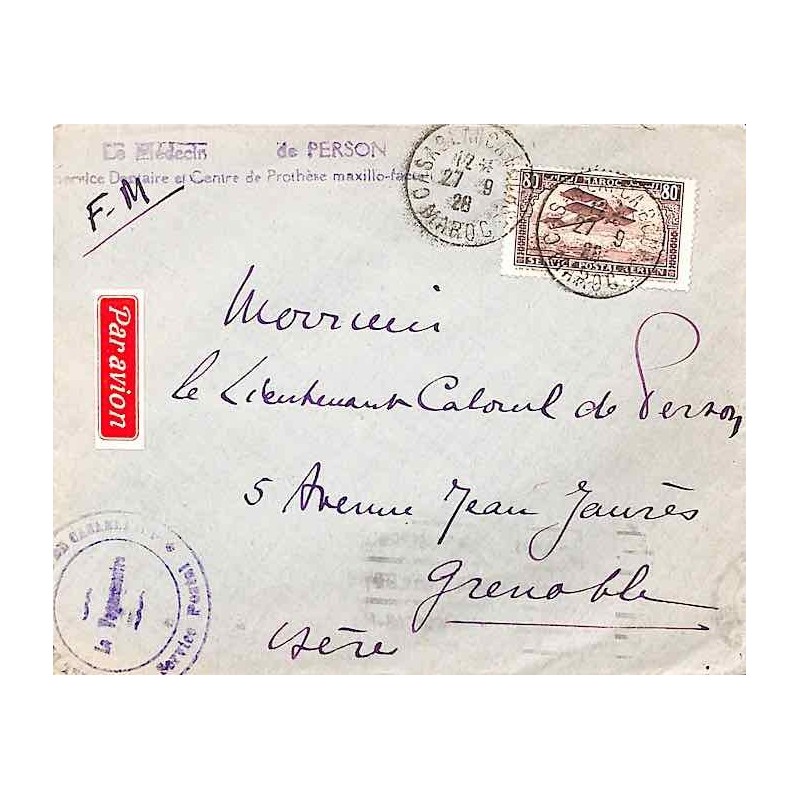 Le Médecin de PERSON
Service Dentaire et Centre de Prothèse maxillo-faciale
F.M
CASABLANCA
27 9
28
MAROC
MAROC
80
SERVICE POSTAL AÉRIEN
27 9
Par avion
Monsieur
le Lieutenant Colonel de Person
5 Avenue Jean Jaurès
Grenoble
Isère
Le Vaguemestre
Service